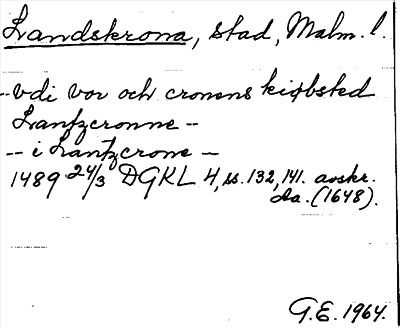 Landskrona, stad, Malm. l.
-- vdi vor och cronens kiøbsted
Lantzcronne --
-- i Lantzcrone --
1489 24/3 DGKL 4, ss. 132, 141. avskr.
da. (1648).
G.E. 1964.